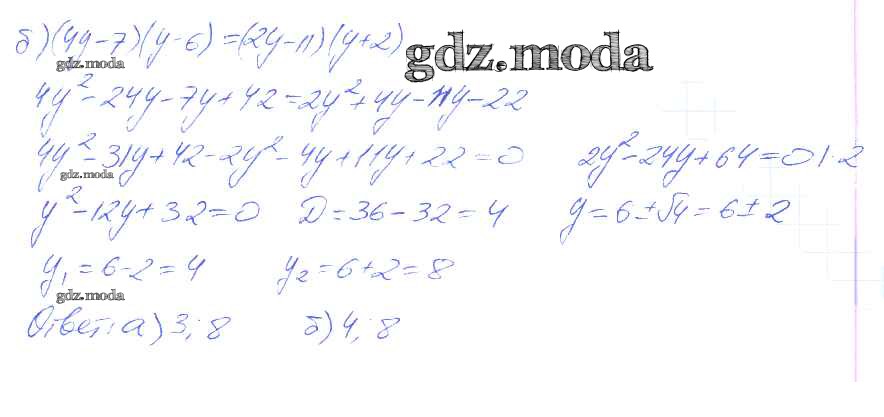 б) (4y-7)(y-6)=(2y-11)(y+2)
gdz.moda
gdz.moda
4y²-24y-7y+42=2y²+4y-11y-22
4y²-31y+42-2y²-4y+11y+22=0 2y²-24y+64=0 | ·2
gdz.moda
y²-12y+32=0 D=36-32=4 y=6±√4=6±2
y₁=6-2=4 y₂=6+2=8
gdz.moda
Ответ: а) 3; 8 б) 4; 8